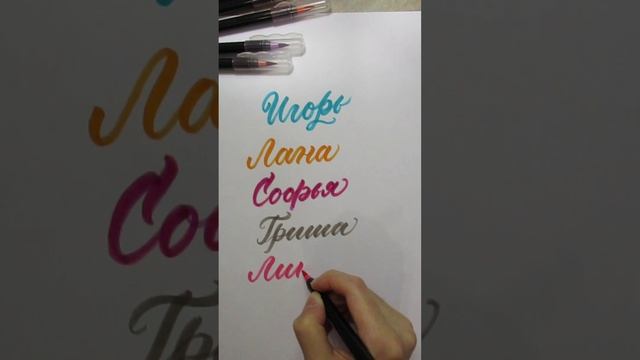 Игорь
Лана
Софья
Гриша
Ли